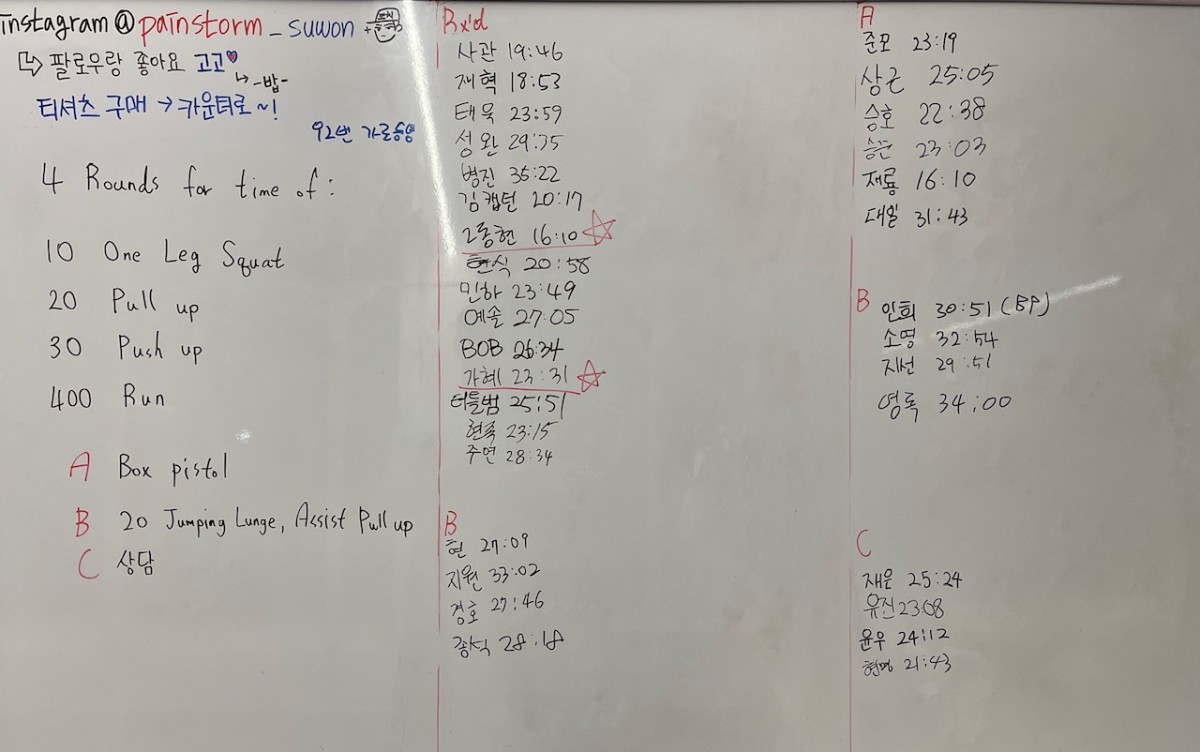 instagram@painstorm_suwon +
↳ 팔로우랑 좋아요 고고♥
↳ -밥-
티셔츠 구매 → 카운터로~!
92번
4 Rounds for time of :
10 One Leg Squat
20 Pull up
30 Push up
400 Run
A Box pistol
B 20 Jumping Lunge, Assist Pull up
C 상담
Rx'd
사관 19:46
재혁 18:53
태욱 23:59
성완 29:35
병진 35:22
김캡틴 20:17
2동현 16:10 ☆
현식 20:58
민하 23:49
예솔 27:05
BOB 26:34
가혜 23:31 ☆
터틀범 25:51
23:15
주연 28:34
B
현 27:09
지원 33:02
경호 27:46
종식 28:18
A
준모 23:19
상근 25:05
승호 22:38
23:03
재룡 16:10
대일 31:43
B
인희 30:51 (BP)
소영 32:54
지선 29:51
영록 34:00
C
재은 25:24
유진 23:08
윤우 24:12
21:43